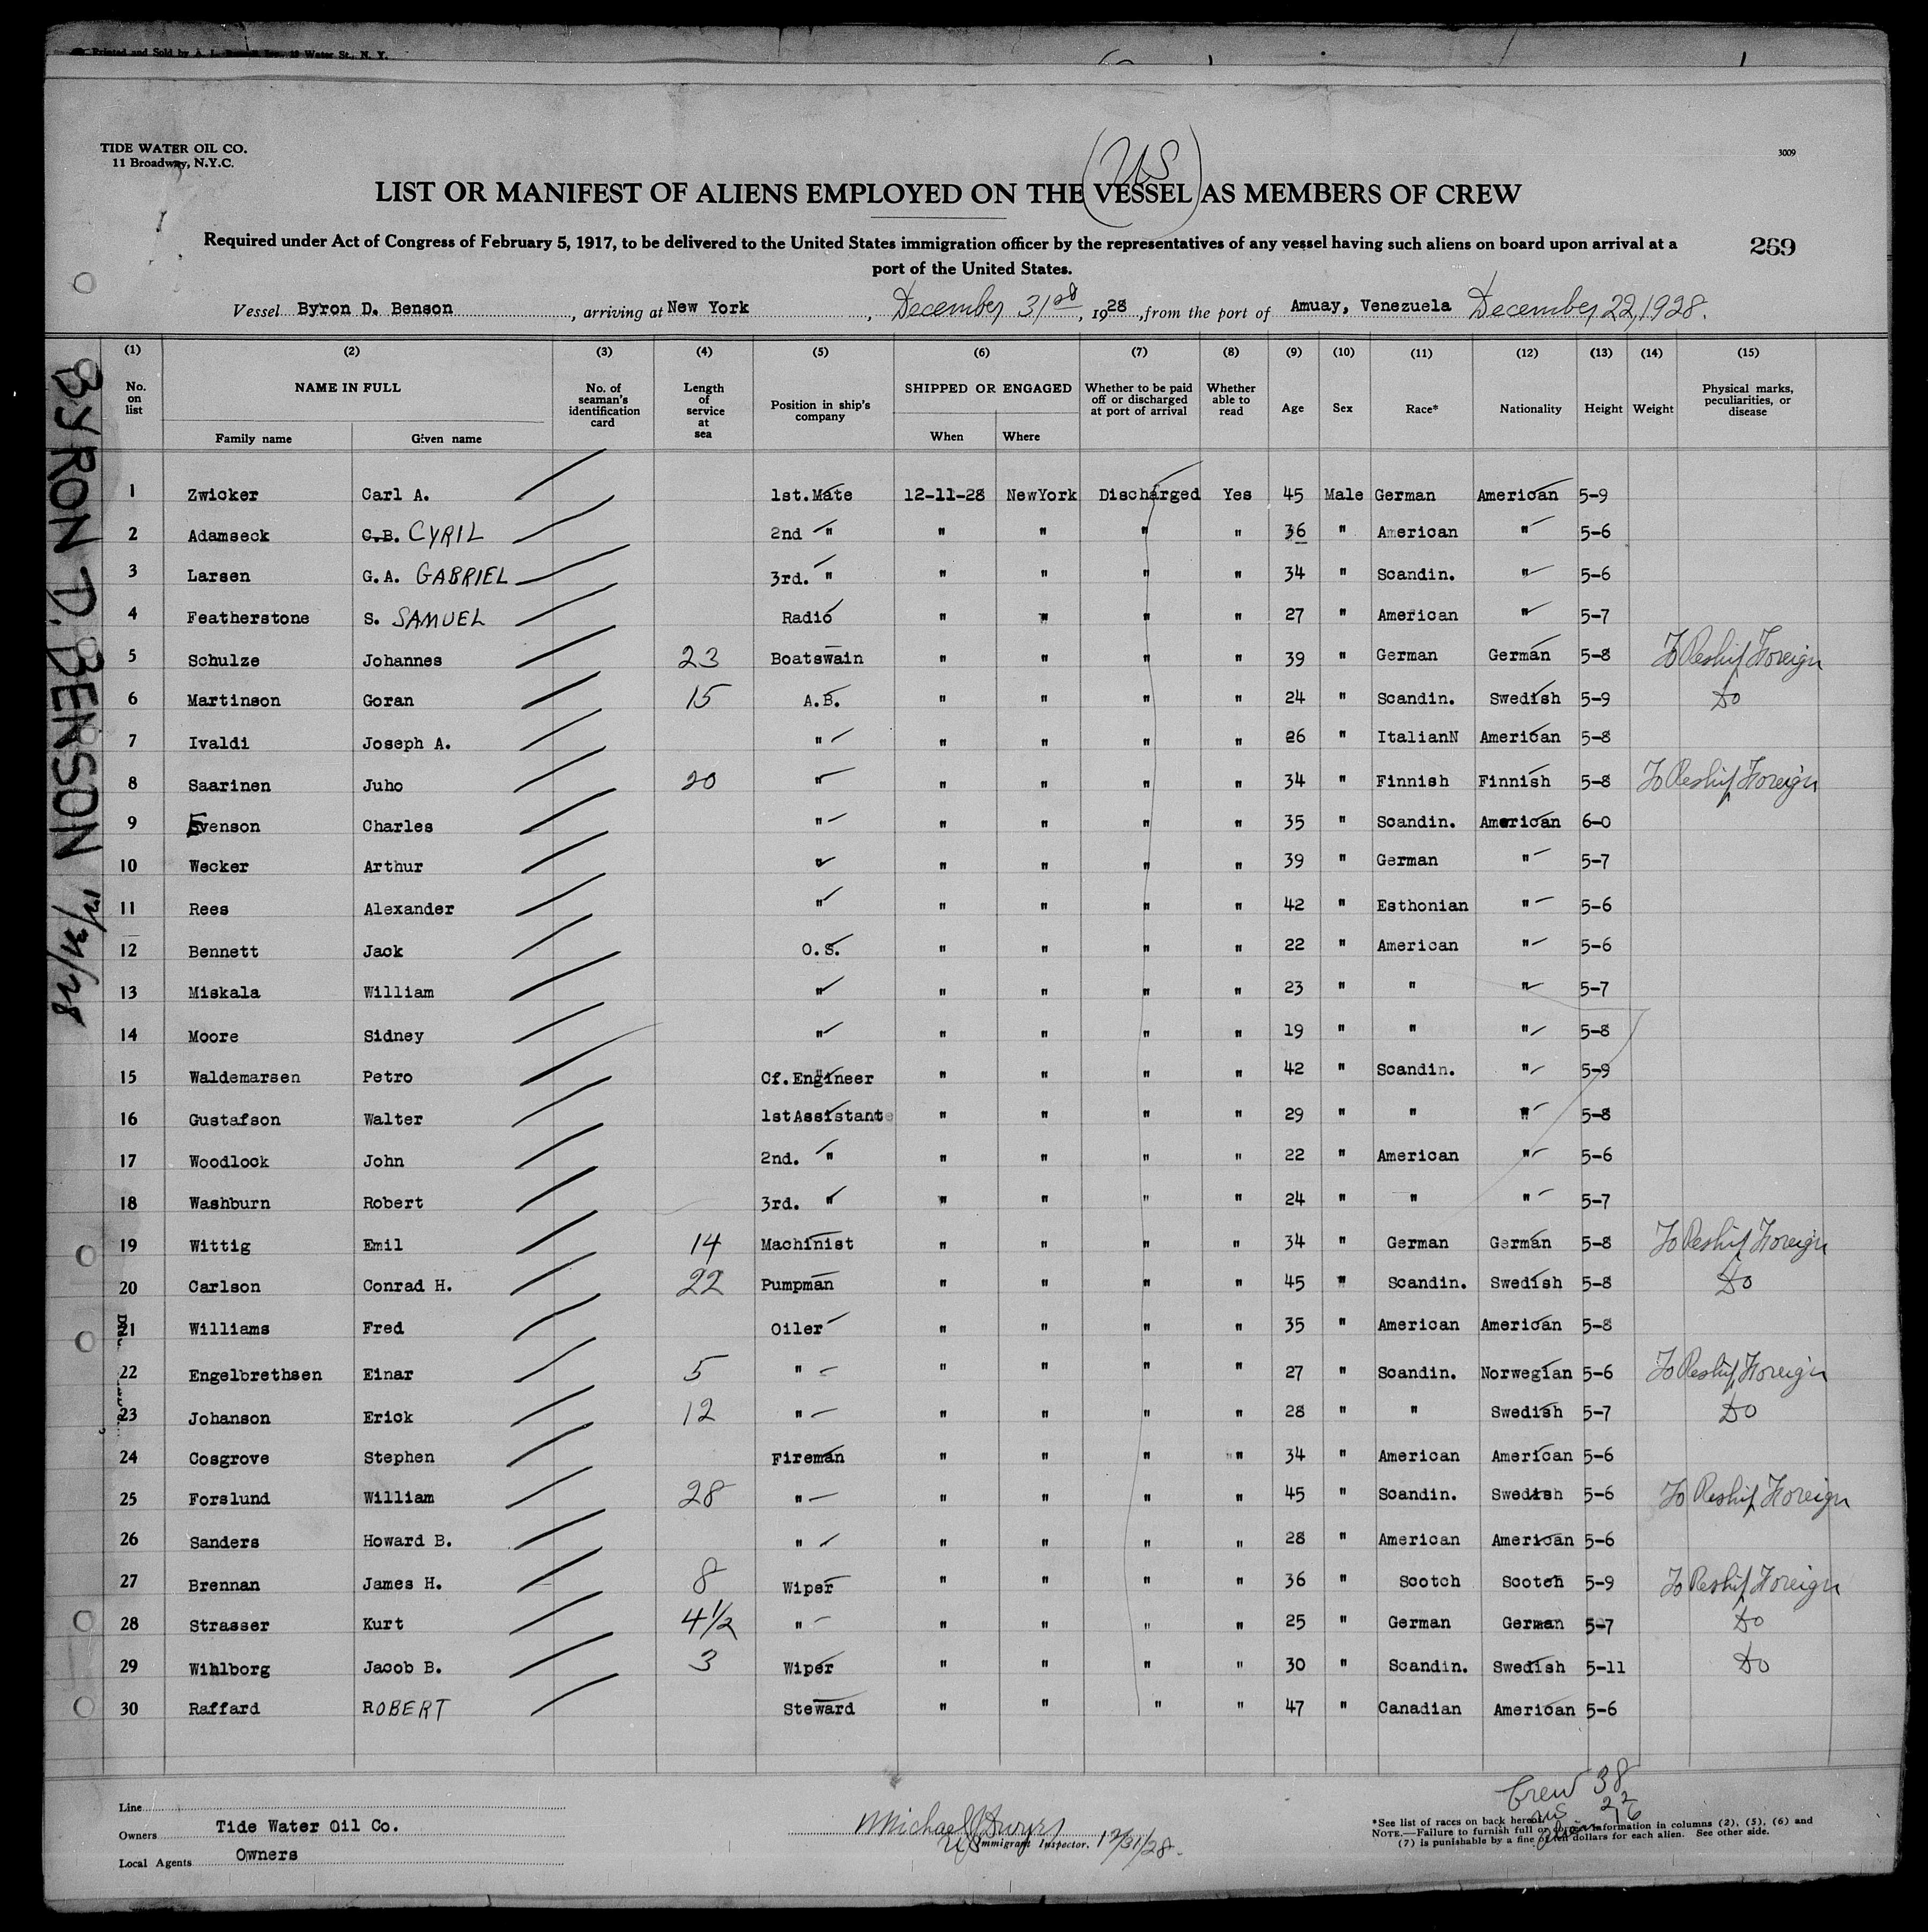 Printed and Sold by A. L. Water St., N. Y.
TIDE WATER OIL CO.
11 Broadway, N.Y.C.
(US)
3009
LIST OR MANIFEST OF ALIENS EMPLOYED ON THE VESSEL AS MEMBERS OF CREW
Required under Act of Congress of February 5, 1917, to be delivered to the United States immigration officer by the representatives of any vessel having such aliens on board upon arrival at a
port of the United States.
269
Vessel Byron D. Benson, arriving at New York, December 31, 1928, from the port of Amuay, Venezuela December 22, 1928.
BYRON D. BENSON 12/31/28
(1) (2) (3) (4) (5) (6) (7) (8) (9) (10) (11) (12) (13) (14) (15)
No. on list NAME IN FULL Family name Given name No. of seaman's identification card Length of service at sea Position in ship's company SHIPPED OR ENGAGED When Where Whether to be paid off or discharged at port of arrival Whether able to read Age Sex Race* Nationality Height Weight Physical marks, peculiarities, or disease
1 Zwicker Carl A. 1st.Mate 12-11-28 NewYork Discharged Yes 45 Male German American 5-9
2 Adamseck C.B. CYRIL 2nd " " " " " 36 " American " 5-6
3 Larsen G.A. GABRIEL 3rd. " " " " " 34 " Scandin. " 5-6
4 Featherstone S. SAMUEL Radio " " " " 27 " American " 5-7
5 Schulze Johannes 23 Boatswain " " " " 39 " German German 5-8 To Reship Foreign
6 Martinson Goran 15 A.B. " " " " 24 " Scandin. Swedish 5-9 Do
7 Ivaldi Joseph A. " " " " " 26 " ItalianN American 5-8
8 Saarinen Juho 20 " " " " " 34 " Finnish Finnish 5-8 To Reship Foreign
9 Evenson Charles " " " " " 35 " Scandin. American 6-0
10 Wecker Arthur " " " " " 39 " German " 5-7
11 Rees Alexander " " " " " 42 " Esthonian " 5-6
12 Bennett Jack O.S. " " " " 22 " American " 5-6
13 Miskala William " " " " " 23 " " " 5-7
14 Moore Sidney " " " " " 19 " " " 5-8
15 Waldemarsen Petro Cf.Engineer " " " " 42 " Scandin. " 5-9
16 Gustafson Walter 1stAssistant " " " " 29 " " " 5-8
17 Woodlock John 2nd. " " " " " 22 " American " 5-6
18 Washburn Robert 3rd. " " " " " 24 " " " 5-7
19 Wittig Emil 14 Machinist " " " " 34 " German German 5-8 To Reship Foreign
20 Carlson Conrad H. 22 Pumpman " " " " 45 " Scandin. Swedish 5-8 Do
21 Williams Fred Oiler " " " " 35 " American American 5-8
22 Engelbrethsen Einar 5 " " " " " 27 " Scandin. Norwegian 5-6 To Reship Foreign
23 Johanson Erick 12 " " " " " 28 " " Swedish 5-7 Do
24 Cosgrove Stephen Fireman " " " " 34 " American American 5-6
25 Forslund William 28 " " " " " 45 " Scandin. Swedish 5-6 To Reship Foreign
26 Sanders Howard B. " " " " " 28 " American American 5-6
27 Brennan James H. 8 Wiper " " " " 36 " Scotch Scotch 5-9 To Reship Foreign
28 Strasser Kurt 4 1/2 " " " " " 25 " German German 5-7 Do
29 Wihlborg Jacob B. 3 Wiper " " " " 30 " Scandin. Swedish 5-11 Do
30 Raffard ROBERT Steward " " " " 47 " Canadian American 5-6
Crew 38
US 22
Alien 16
Line
Owners Tide Water Oil Co.
Local Agents Owners
Michael J Dwyer
US Immigrant Inspector. 12/31/28.
*See list of races on back hereof.
NOTE.—Failure to furnish full or information in columns (2), (5), (6) and
(7) is punishable by a fine of ten dollars for each alien. See other side.